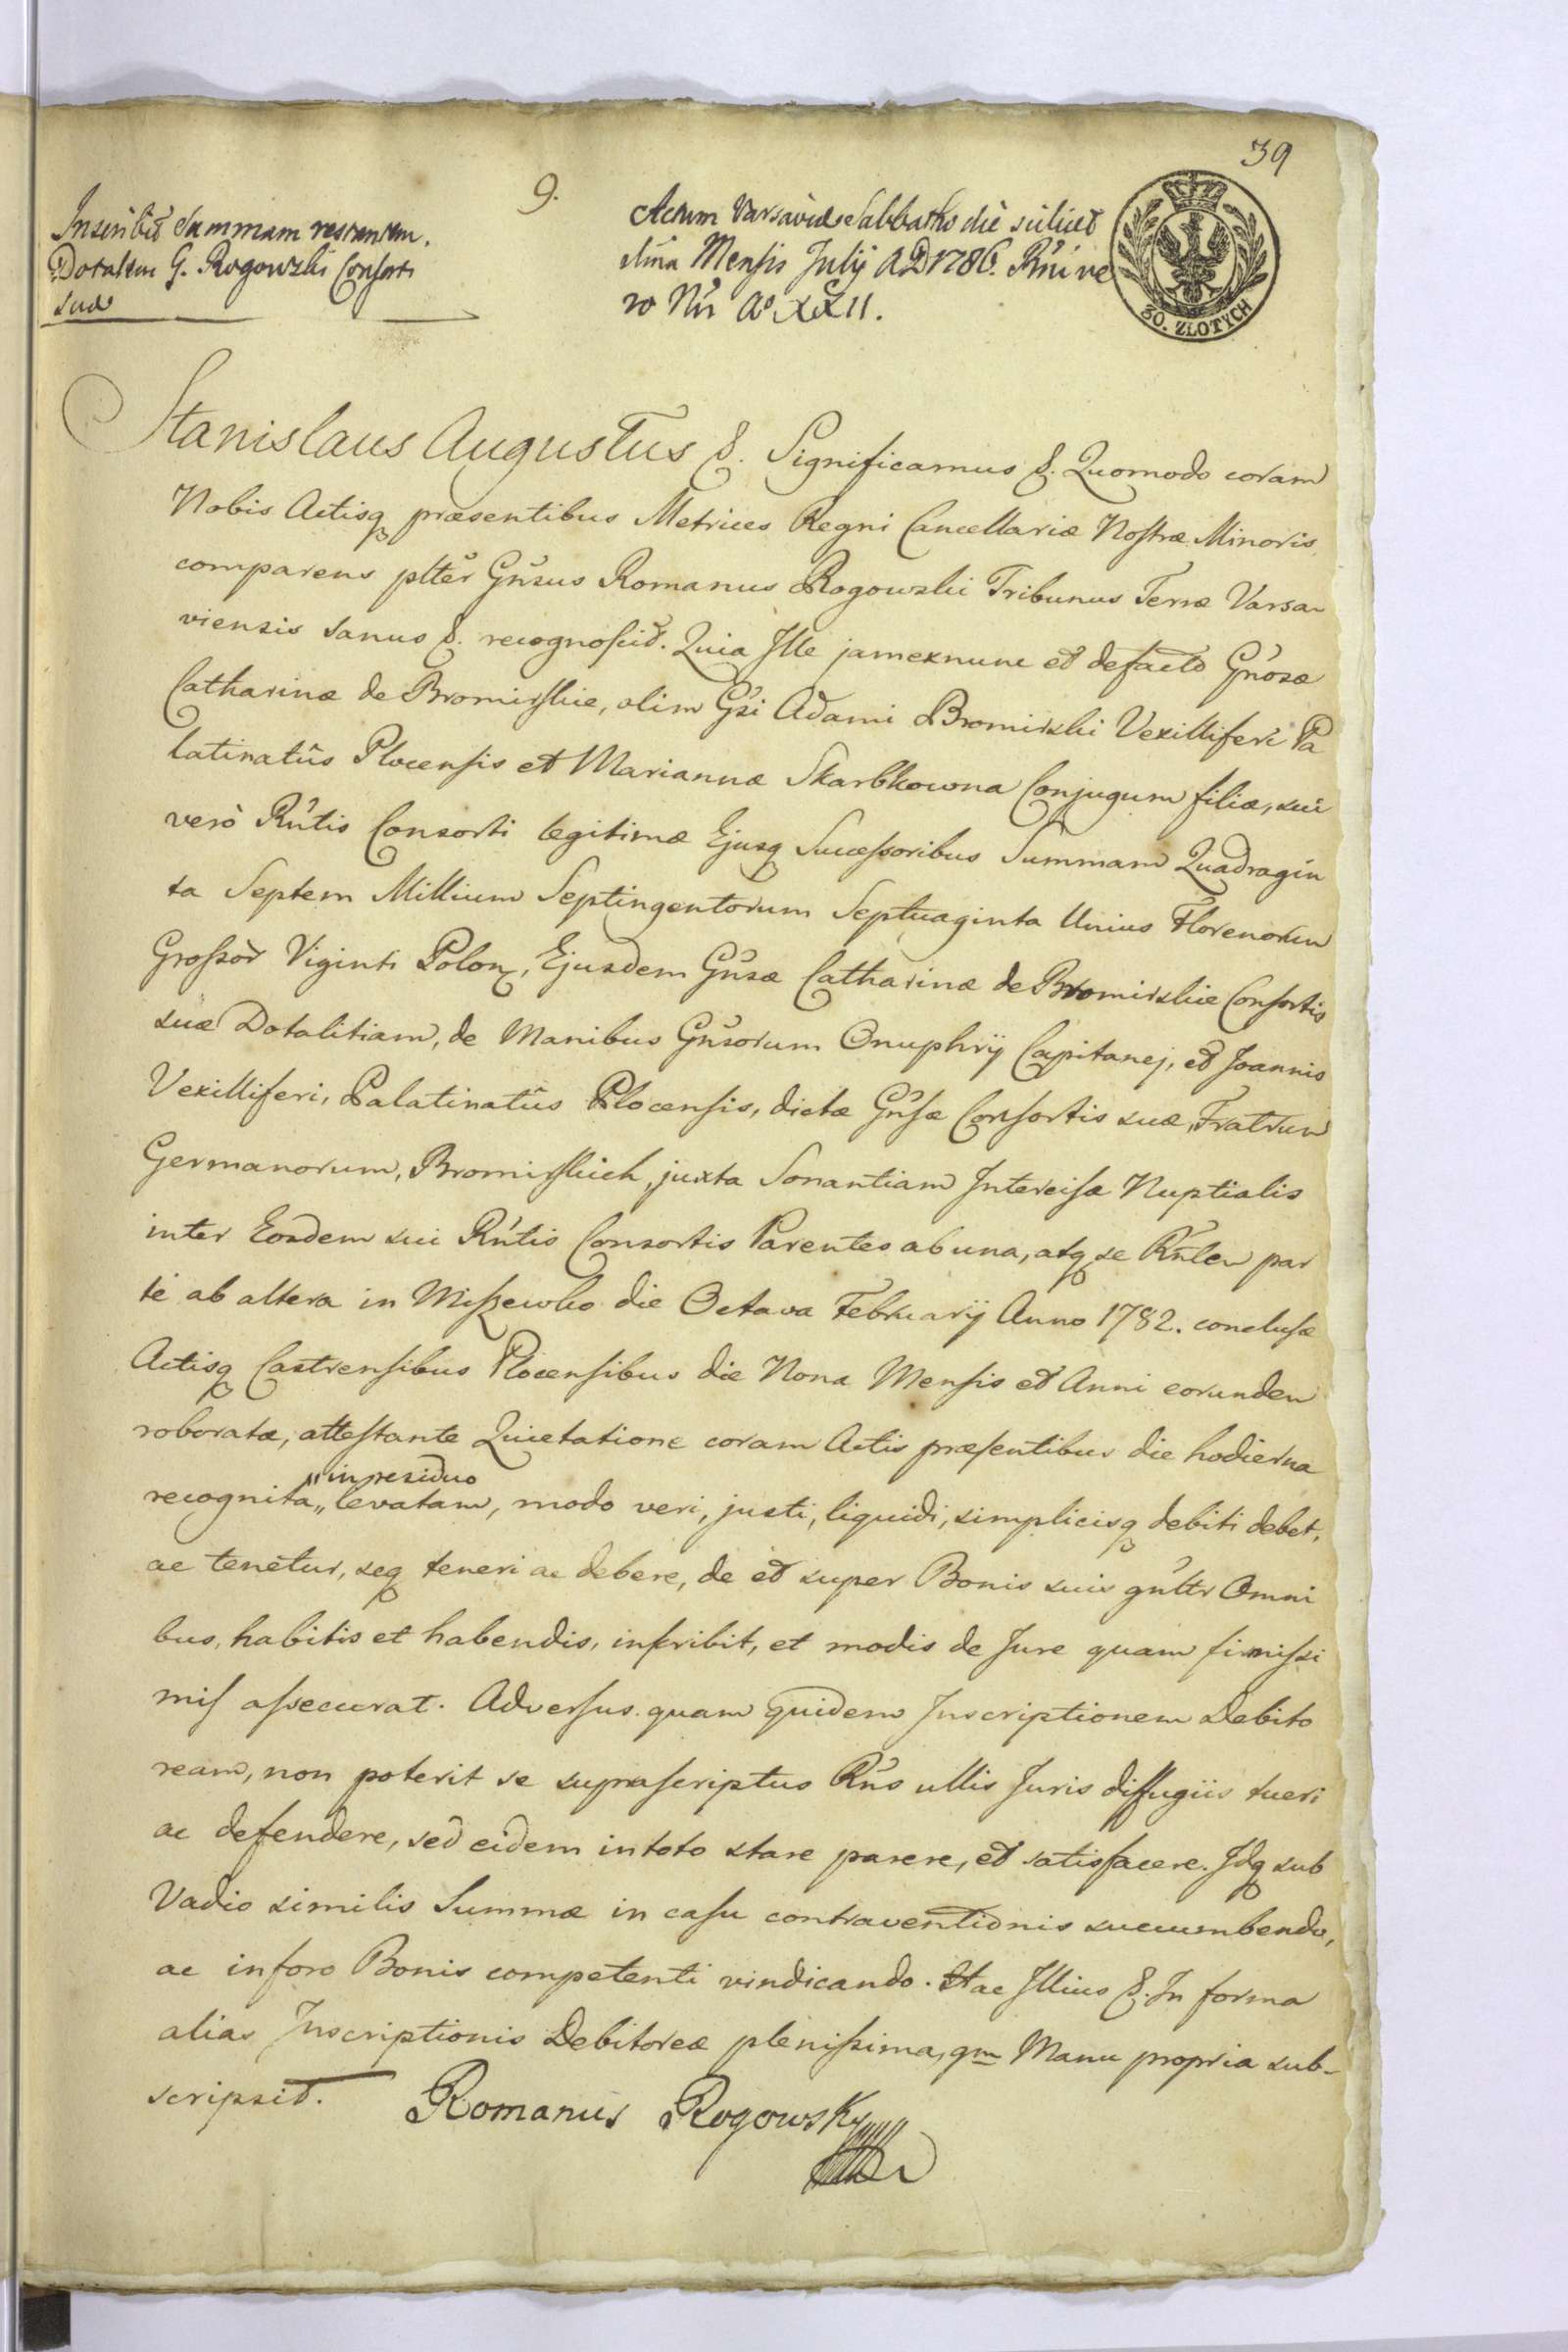 39
9.
Inscribit Summam restantem.
Dotalem G. Rogowski Consorti
suæ
Actum Varsaviæ Sabbatho die scilicet
Mensis Julij AD 1786. Rni ve
ro Nri Aº XXII.
30. ZŁOTYCH
Stanislaus Augustus &. Significamus &. Quomodo coram
Nobis Actisq præsentibus Metrices Regni Cancellariæ Nostræ Minoris,
comparens plter Gnsus Romanus Rogowski Tribunus Terræ Varsa
viensis sanus &. recognoscit. Quia Ille jamexnunc et defacto Gnosæ
Catharinæ de Bromirskie, olim Gsi Adami Bromirski Vexilliferi Pa
latinatûs Plocensis et Mariannæ Skarbkowna Conjugum filiæ, sui
verò Rntis Consorti legitimæ Ejusq Successoribus Summam Quadragin
ta Septem Millium Septingentorum Septuaginta Unius Florenorum
Grossor Viginti Polon, Ejusdem Gnsæ Catharinæ de Bromirskie Consortis
suæ Dotalitiam, de Manibus Gnsorum Onuphrij Capitanej, et Joannis
Vexilliferi, Palatinatûs Plocensis, dictæ Gnsæ Consortis suæ, Fratrum
Germanorum, Bromirskich, juxta Sonantiam Intercisæ Nuptialis
inter Eosdem sui Rntis Consortis Parentes ab una, atq se Rntem par
te ab altera in Miszewko die Octava Februarij Anno 1782. conclusæ
Actisq Castrensibus Plocensibus die Nona Mensis et Anni eorundem
roboratæ, attestante Quietatione coram Actis præsentibus die hodierna
"in residuo
recognita,, levatam, modo veri, justi, liquidi, simplicisq debiti debet,
ac tenetur, seq teneri ac debere, de et super Bonis suis gnltr Omni
bus, habitis et habendis, inscribit, et modis de Jure quam firmissi
mis assecurat. Adversus quam quidem Inscriptionem Debito
ream, non poterit se suprascriptus Rns ullis Juris diffugiis tueri
ac defendere, sed eidem in toto stare parere, et satisfacere. Idq sub
Vadio similis Summæ in casu contraventionis succumbendo,
ac in foro Bonis competenti vindicando. Hac Illius &. In forma
alias Inscriptionis Debitoreæ plenissima, qm Manu propria sub-
scripsit. Romanus Rogowsky